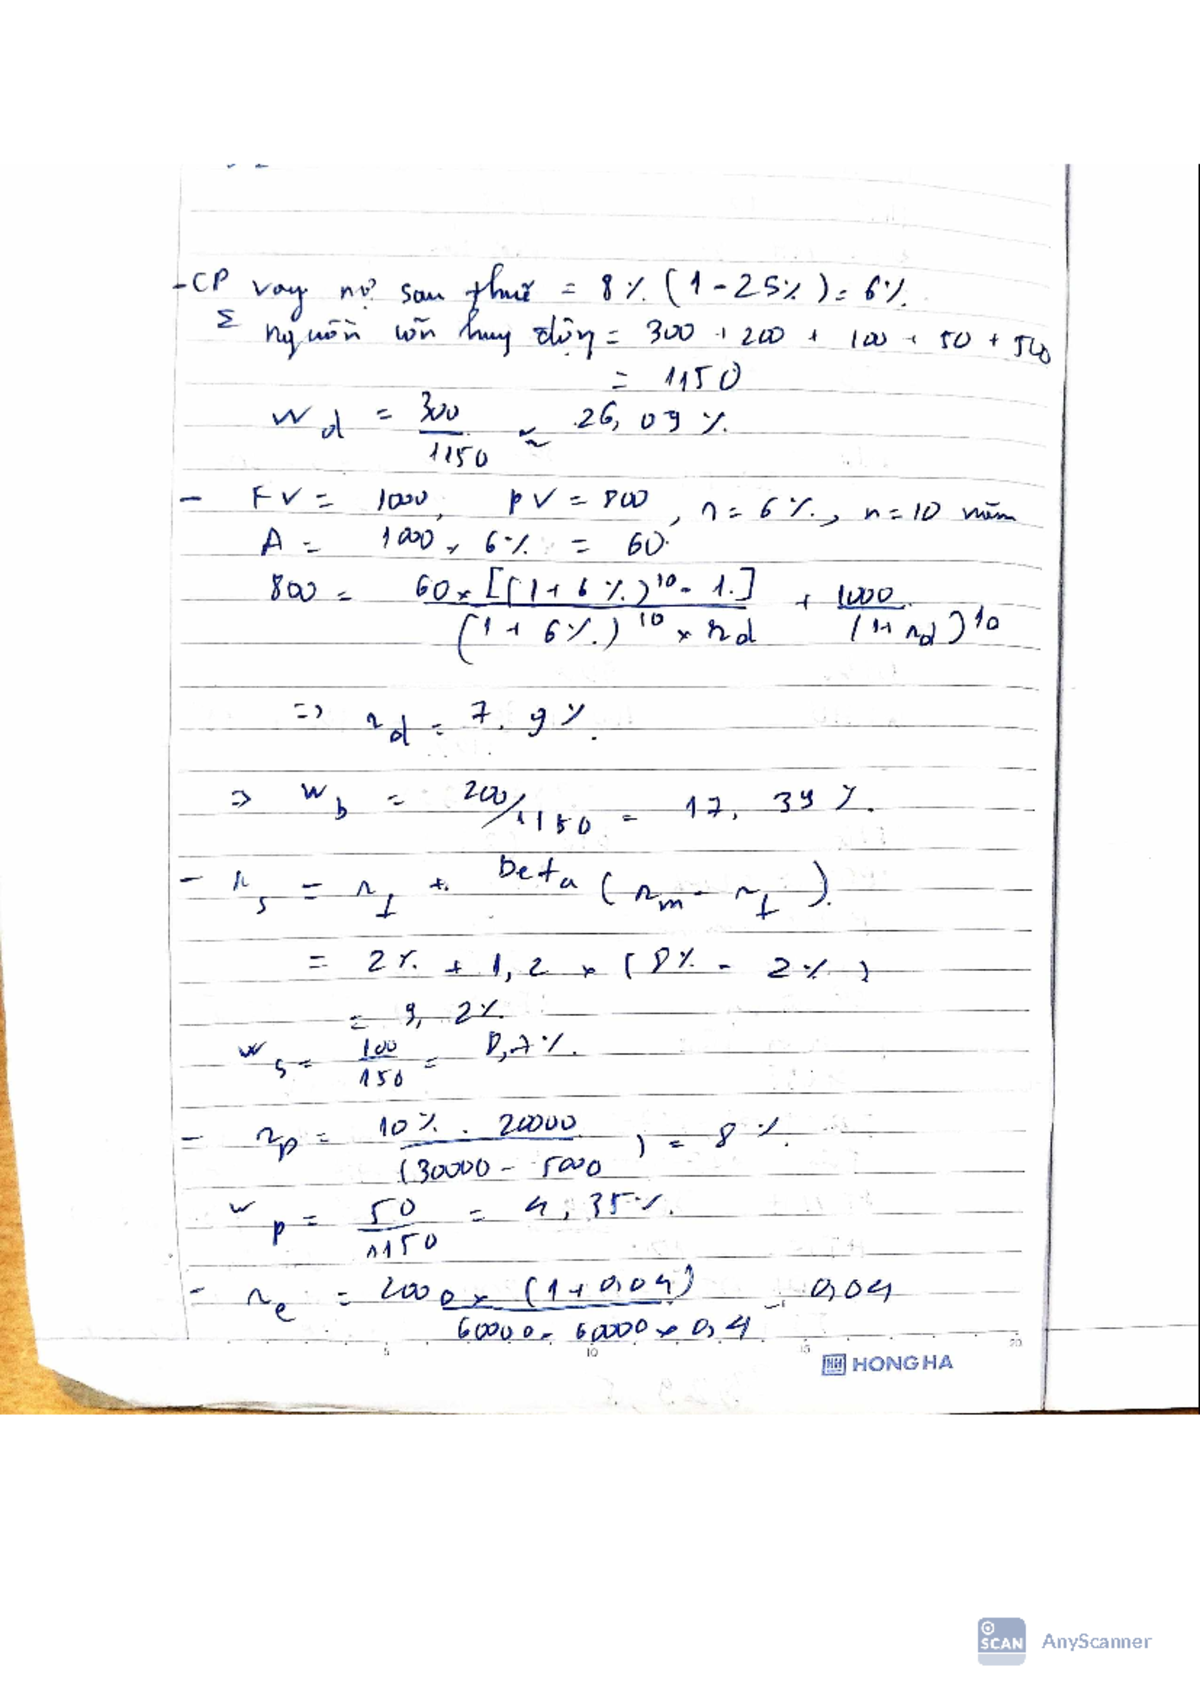 - CP vay nợ sau thuế = 8% (1 - 25%) = 6%.
Σ nguồn vốn huy động = 300 + 200 + 100 + 50 + 500
= 1150
W_d = 300/1150 ≈ 26,09%.
- FV = 1000, PV = 800, r = 6%, n = 10 năm
A = 1000 × 6% = 60.
800 = 60 × [(1 + 6%)^10 - 1.] / (1 + 6%.)^10 × r_d + 1000 / (1 + r_d)^10
=> r_d = 7,9%.
=> W_b = 200/1150 = 17,39%.
- r_s = r_f + beta (r_m - r_f).
= 2% + 1,2 × (8% - 2%)
= 9,2%
W_s = 100/150 = 8,7%.
- r_p = 10% . 20000 / (30000 - 5000) = 8%.
W_p = 50/1150 = 4,35%.
- r_e = 2000 × (1 + 0,04) / 60000 - 60000 × 0,4 - 0,04
5 10 15 20
HH HONG HA
SCAN AnyScanner